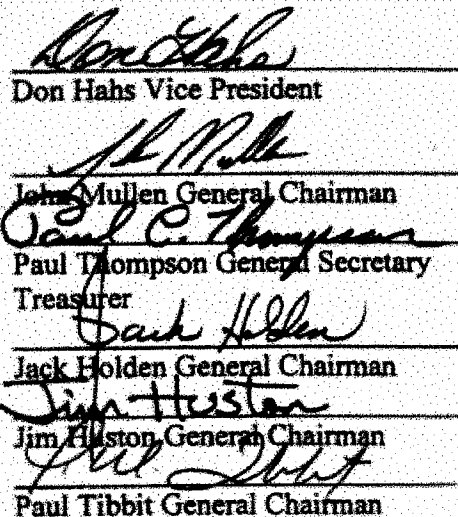 Don Hahs
Don Hahs Vice President
John Mullen General Chairman
Paul C. Thompson
Paul Thompson General Secretary
Treasurer
Jack Holden
Jack Holden General Chairman
Jim Huston
Jim Huston General Chairman
Paul Tibbit
Paul Tibbit General Chairman